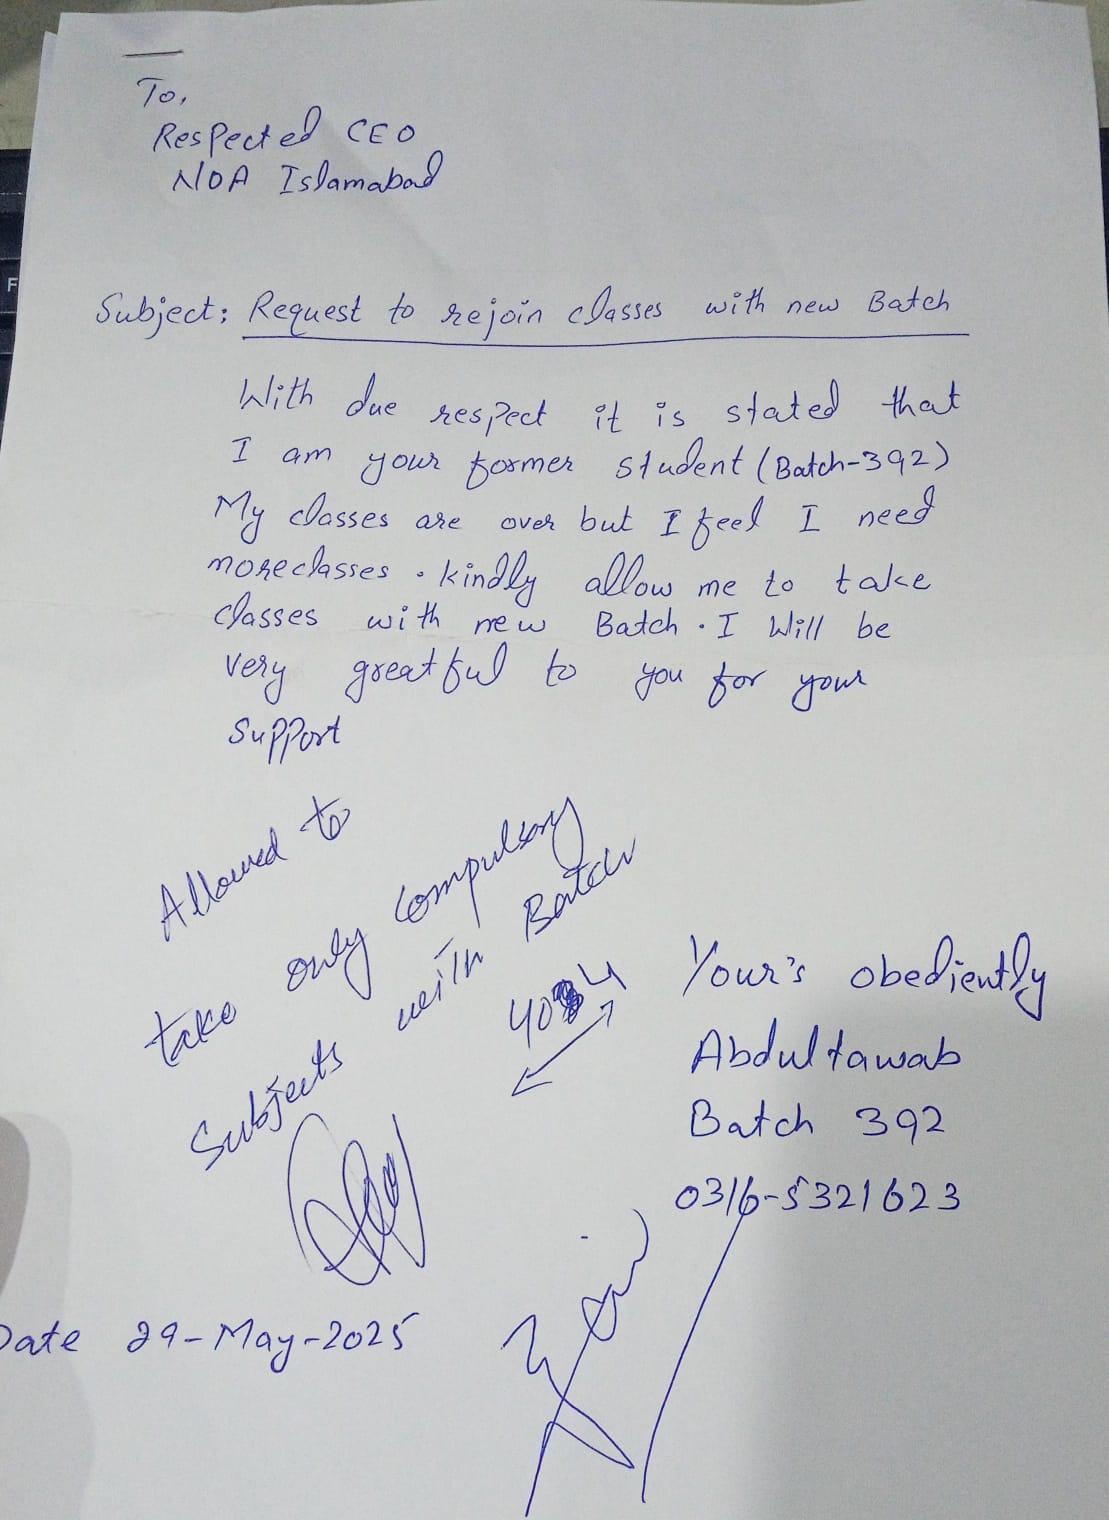 To,
Respected CEO
NOA Islamabad
Subject: Request to rejoin classes with new Batch
With due respect it is stated that
I am your former student (Batch-392)
My classes are over but I feel I need
more classes. kindly allow me to take
classes with new Batch. I Will be
very greatful to you for your
Support
Allowed to
take only Compulsory
Subjects with Batch
Your's obediently
Abdultawab
Batch 392
0316-5321623
Date 29-May-2025
F